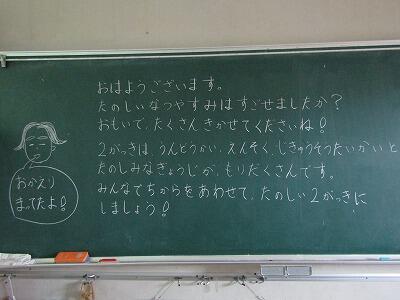 おはようございます。
たのしいなつやすみはすごせましたか?
おもいで、たくさんきかせてくださいね!
2がっきは、うんどうかい、えんそく、じきゅうそうたいかいと
たのしみなぎょうじが、もりだくさんです。
みんなでちからをあわせて、たのしい2がっきに
しましょう!
おかえり
まってたよ!